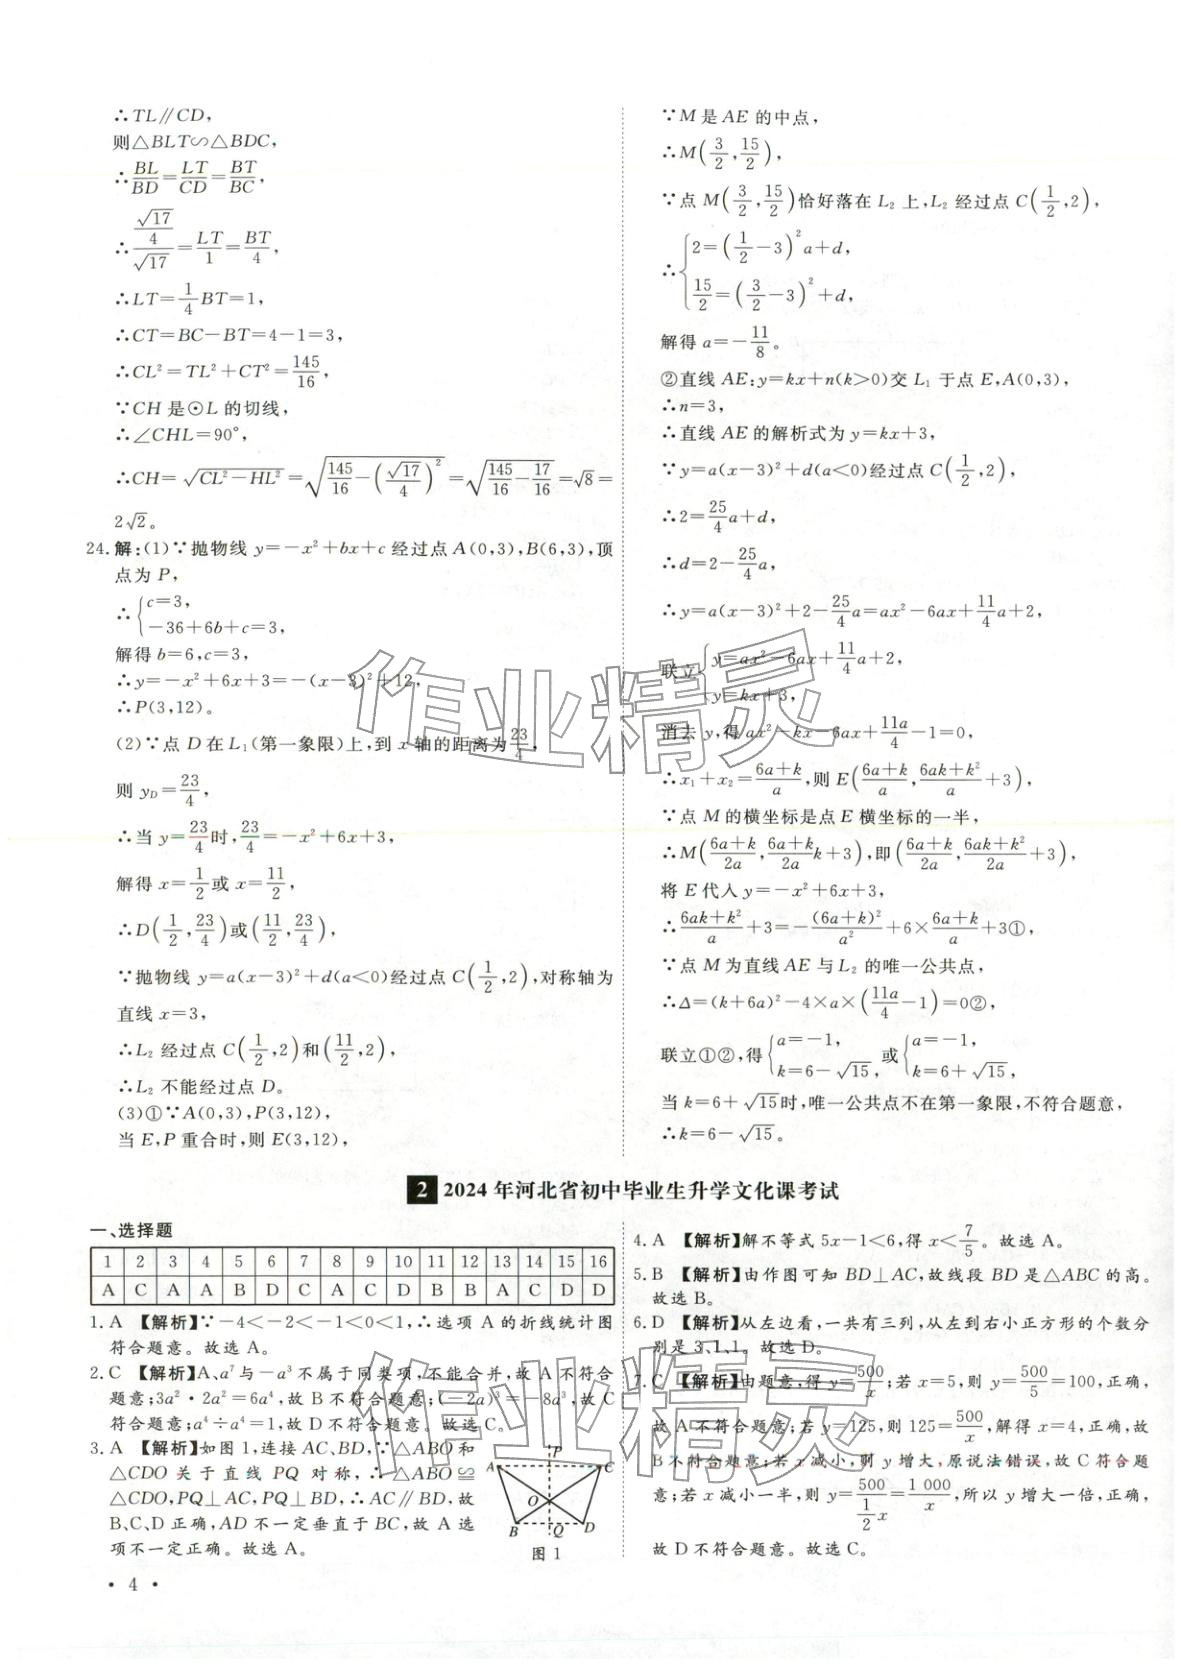 ∴TL∥CD,
则△BLT∽△BDC,
∴BL/BD=LT/CD=BT/BC,
∴(√17/4)/√17=LT/1=BT/4,
∴LT=1/4BT=1,
∴CT=BC−BT=4−1=3,
∴CL²=TL²+CT²=145/16,
∵CH 是⊙L 的切线,
∴∠CHL=90°,
∴CH=√(CL²−HL²)=√(145/16−(√17/4)²)=√(145/16−17/16)=√8=
2√2。
24. 解:(1)∵抛物线 y=−x²+bx+c 经过点 A(0,3),B(6,3),顶
点为 P,
∴{c=3,
−36+6b+c=3,
解得 b=6,c=3,
∴y=−x²+6x+3=−(x−3)²+12,
∴P(3,12)。
(2)∵点 D 在 L₁(第一象限)上,到 x 轴的距离为23/4,
则 y_D=23/4,
∴当 y=23/4时,23/4=−x²+6x+3,
解得 x=1/2或 x=11/2,
∴D(1/2,23/4)或(11/2,23/4),
∵抛物线 y=a(x−3)²+d(a<0)经过点 C(1/2,2),对称轴为
直线 x=3,
∴L₂ 经过点 C(1/2,2)和(11/2,2),
∴L₂ 不能经过点 D。
(3)①∵A(0,3),P(3,12),
当 E,P 重合时,则 E(3,12),
∵M 是 AE 的中点,
∴M(3/2,15/2),
∵点 M(3/2,15/2)恰好落在 L₂ 上,L₂ 经过点 C(1/2,2),
∴{2=(1/2−3)²a+d,
15/2=(3/2−3)²+d,
解得 a=−11/8。
②直线 AE:y=kx+n(k>0)交 L₁ 于点 E,A(0,3),
∴n=3,
∴直线 AE 的解析式为 y=kx+3,
∵y=a(x−3)²+d(a<0)经过点 C(1/2,2),
∴2=25/4a+d,
∴d=2−25/4a,
∴y=a(x−3)²+2−25/4a=ax²−6ax+11/4a+2,
联立{y=ax²−6ax+11/4a+2,
y=kx+3,
消去 y,得 ax²−kx−6ax+11a/4−1=0,
∴x₁+x₂=(6a+k)/a,则 E((6a+k)/a,(6ak+k²)/a+3),
∵点 M 的横坐标是点 E 横坐标的一半,
∴M((6a+k)/2a,(6a+k)/2a k+3),即((6a+k)/2a,(6ak+k²)/2a+3),
将 E 代入 y=−x²+6x+3,
∴(6ak+k²)/a+3=−(6a+k)²/a²+6×(6a+k)/a+3①,
∵点 M 为直线 AE 与 L₂ 的唯一公共点,
∴Δ=(k+6a)²−4×a×(11a/4−1)=0②,
联立①②,得{a=−1, k=6−√15, 或{a=−1, k=6+√15,
当 k=6+√15时,唯一公共点不在第一象限,不符合题意,
∴k=6−√15。
2 2024 年河北省初中毕业生升学文化课考试
一、选择题
1 2 3 4 5 6 7 8 9 10 11 12 13 14 15 16
A C A A B D C A C D B B A C D D
1. A 【解析】∵−4<−2<−1<0<1,∴选项 A 的折线统计图
符合题意。故选 A。
2. C 【解析】A、a⁷与−a³不属于同类项,不能合并,故 A 不符合
题意;3a²·2a²=6a⁴,故 B 不符合题意;(−2a)³=−8a³,故 C
符合题意;a⁴÷a⁴=1,故 D 不符合题意。故选 C。
3. A 【解析】如图 1,连接 AC、BD,∵△ABO 和
△CDO 关于直线 PQ 对称,∴△ABO≌
△CDO,PQ⊥AC,PQ⊥BD,∴AC∥BD,故
B、C、D 正确,AD 不一定垂直于 BC,故 A 选
项不一定正确。故选 A。
P
A C
O
B Q D
图 1
4. A 【解析】解不等式 5x−1<6,得 x<7/5。故选 A。
5. B 【解析】由作图可知 BD⊥AC,故线段 BD 是△ABC 的高。
故选 B。
6. D 【解析】从左边看,一共有三列,从左到右小正方形的个数分
别是 3、1、1。故选 D。
7. C 【解析】由题意,得 y=500/x;若 x=5,则 y=500/5=100,正确,
故 A 不符合题意;若 y=125,则 125=500/x,解得 x=4,正确,故
B 不符合题意;若 x 减小,则 y 增大,原说法错误,故 C 符合题
意;若 x 减小一半,则 y=500/(1/2 x)=1 000/x,所以 y 增大一倍,正确,
故 D 不符合题意。故选 C。
• 4 •
作业精灵
作业精灵